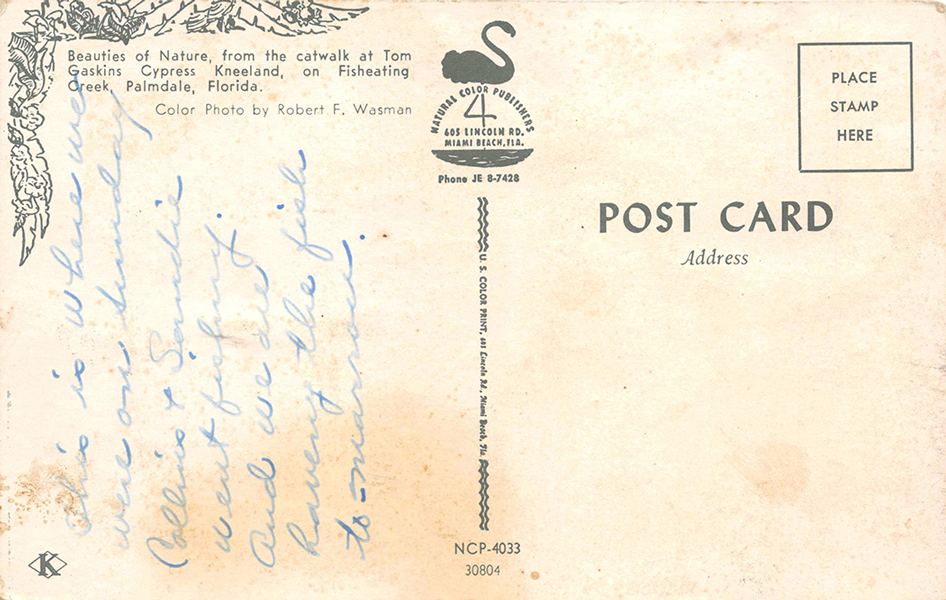 Beauties of Nature, from the catwalk at Tom
Gaskins Cypress Kneeland, on Fisheating
Creek, Palmdale, Florida.
Color Photo by Robert F. Wasman
This is where we
were on Sunday
Collins & Sandie
went fishing.
And we are
having the fish
to-marrow.
NATURAL COLOR PUBLISHERS
4
605 LINCOLN RD.
MIAMI BEACH, FLA.
Phone JE 8-7428
U. S. COLOR PRINT, 605 Lincoln Rd., Miami Beach, Fla.
NCP-4033
30804
K
PLACE
STAMP
HERE
POST CARD
Address